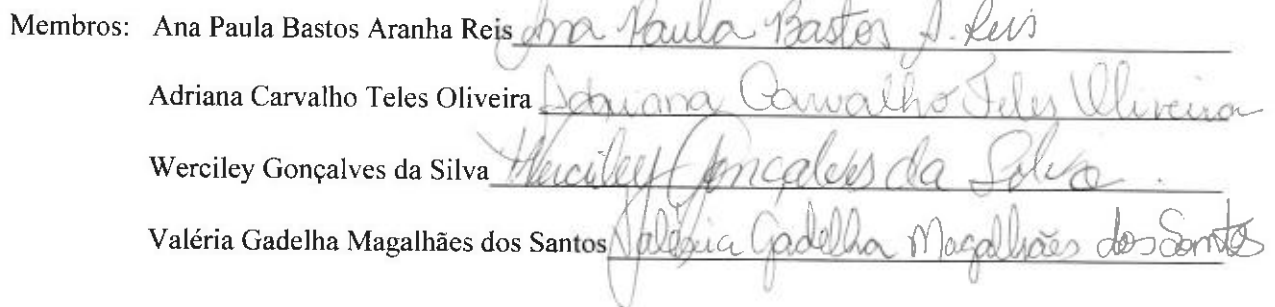 Membros: Ana Paula Bastos Aranha Reis Ana Paula Bastos A. Reis
Adriana Carvalho Teles Oliveira Adriana Carvalho Teles Oliveira
Werciley Gonçalves da Silva Werciley Gonçalves da Silva.
Valéria Gadelha Magalhães dos Santos Valéria Gadelha Magalhães dos Santos